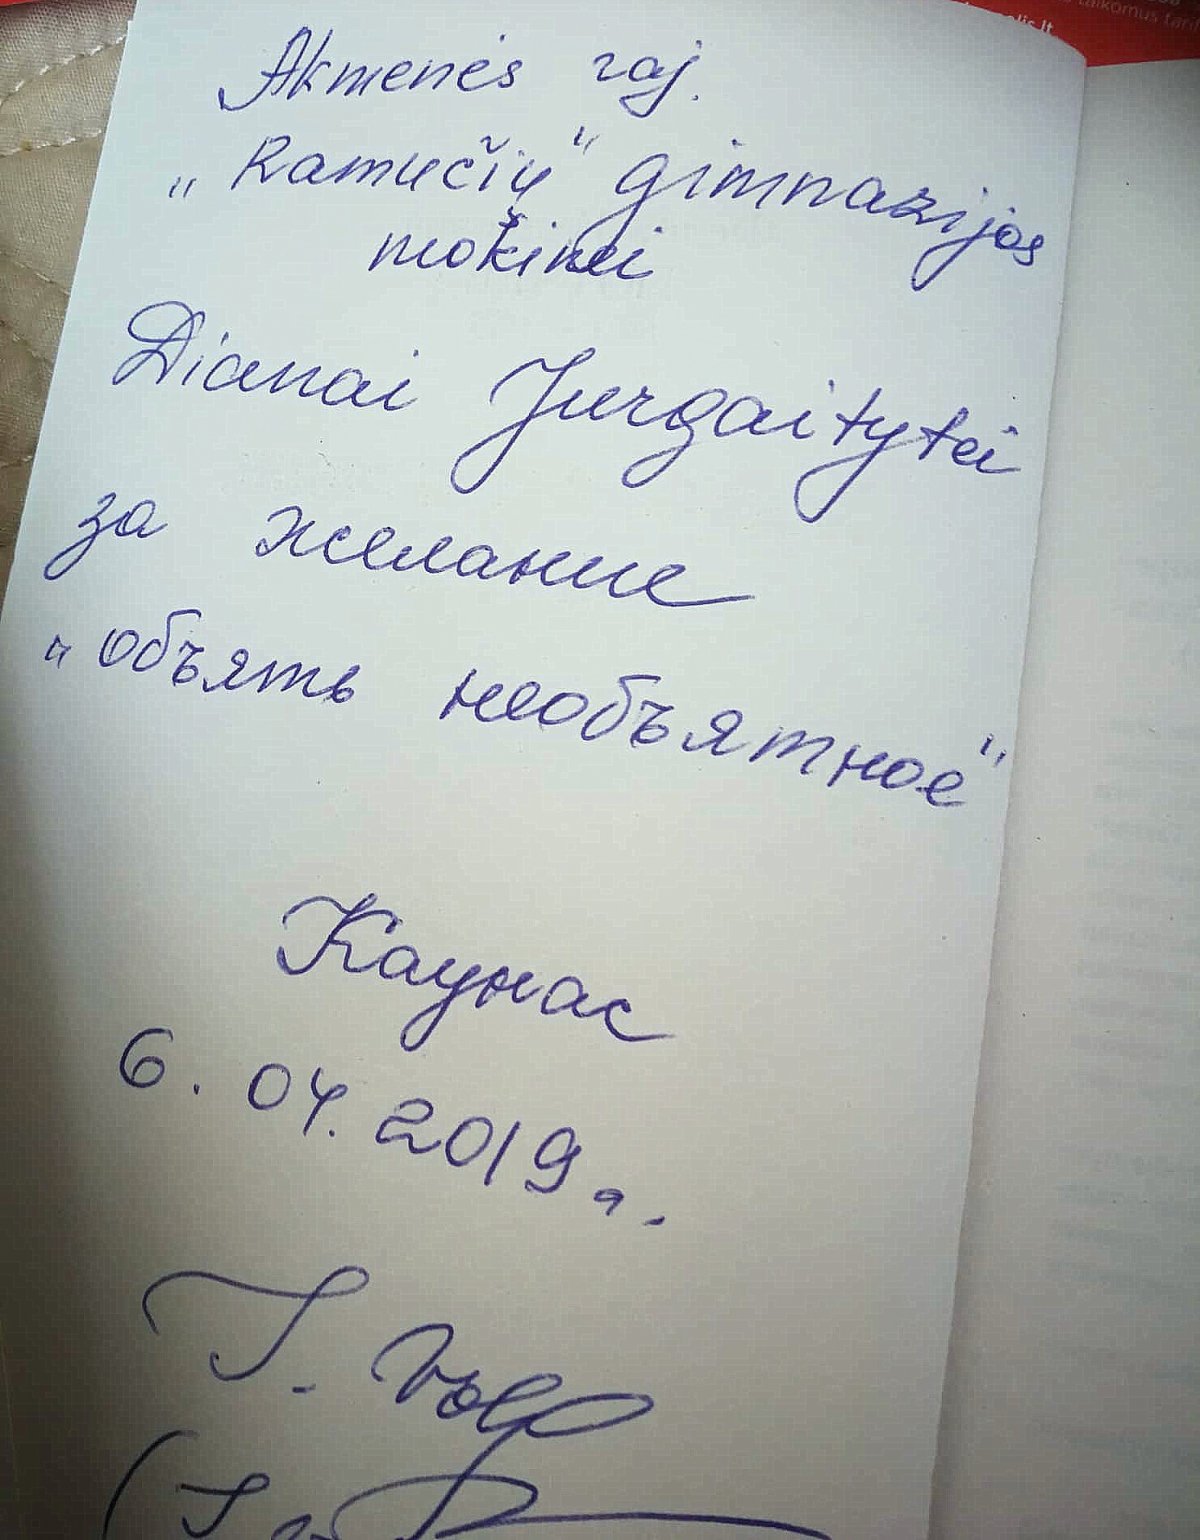 Akmenės raj.
„Ramučių" gimnazijos
mokinei
Dianai Jurgaitytei
за желание
"объять необъятное"
Каунас
6.04.2019 г.